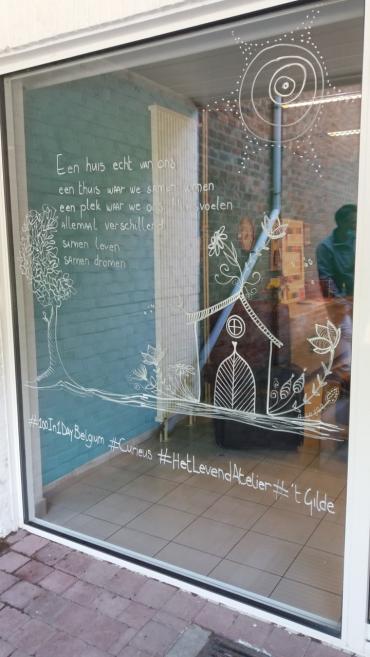 Een huis echt van ons
een thuis waar we samen
een plek waar we ons voelen
allemaal verschillend
samen leven
samen dromen
#100In1DayBelgium #Curieus #HetLevendAtelier #'t Gilde